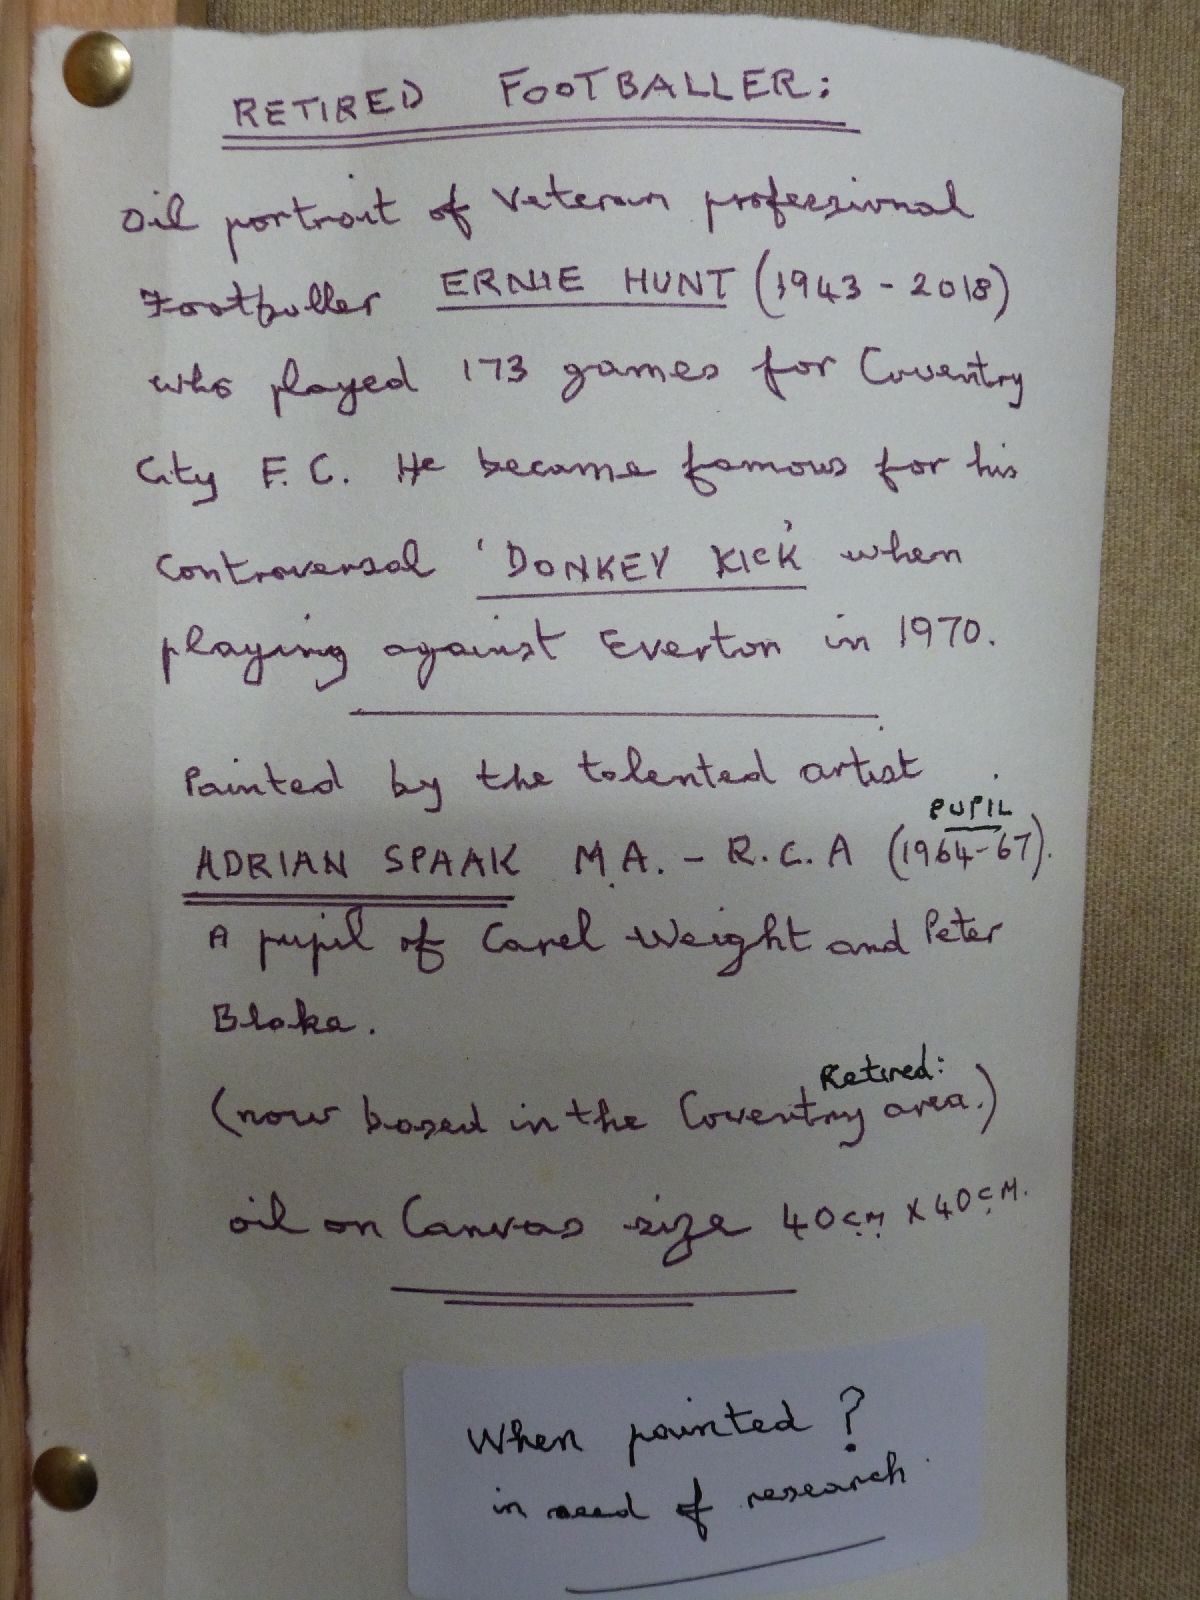 RETIRED FOOTBALLER:
Oil portrait of Veteran professional
Footballer ERNIE HUNT (1943 - 2018)
who played 173 games for Coventry
City F.C. He became famous for his
controversal 'DONKEY KICK' when
playing against Everton in 1970.
Painted by the talented artist
PUPIL
ADRIAN SPAAK M.A. - R.C.A (1964-67).
A pupil of Carel Weight and Peter
Blake.
Retired:
(now based in the Coventry area.)
oil on Canvas size 40cm x 40cm.
When painted?
in need of research